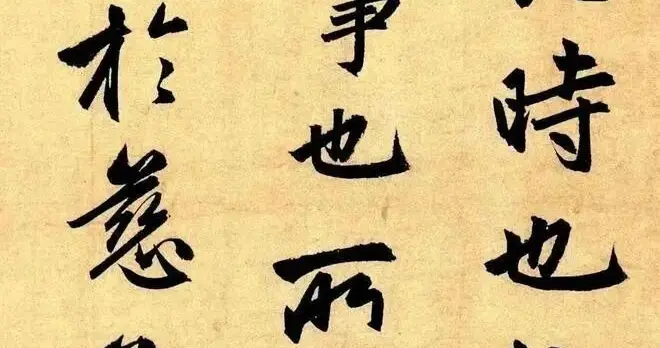 時也
事也所
於慈